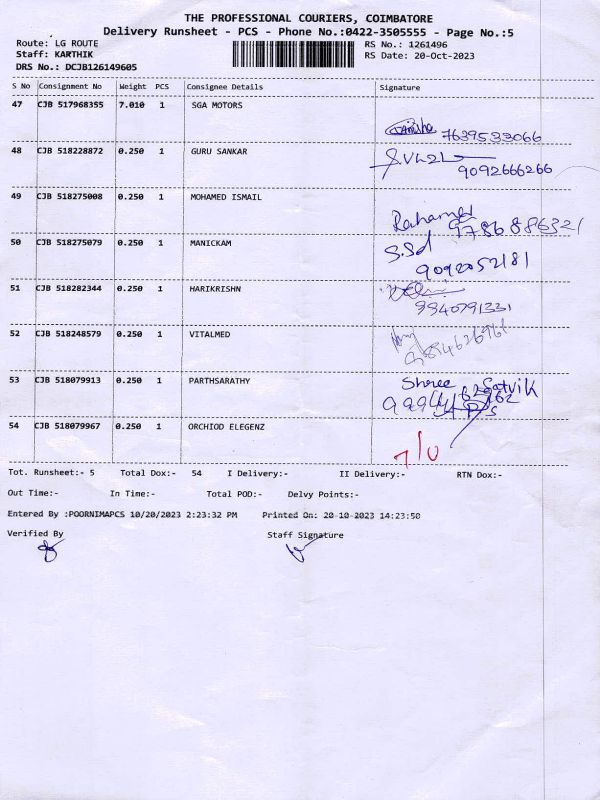 THE PROFESSIONAL COURIERS, COIMBATORE
Delivery Runsheet - PCS - Phone No.:0422-3505555 - Page No.:5
Route: LG ROUTE RS No.: 1261496
Staff: KARTHIK RS Date: 20-Oct-2023
DRS No.: DCJB126149605
S No Consignment No Weight PCS Consignee Details Signature
47 CJB 517968355 7.010 1 SGA MOTORS
7639533066
48 CJB 518228872 0.250 1 GURU SANKAR
9092666266
49 CJB 518275008 0.250 1 MOHAMED ISMAIL
9786886321
50 CJB 518275079 0.250 1 MANICKAM
S.Sd
9092052181
51 CJB 518282344 0.250 1 HARIKRISHN
9940791331
52 CJB 518248579 0.250 1 VITALMED
53 CJB 518079913 0.250 1 PARTHSARATHY
Shree Satvik
54 CJB 518079967 0.250 1 ORCHIOD ELEGENZ
Tot. Runsheet:- 5 Total Dox:- 54 I Delivery:- II Delivery:- RTN Dox:-
Out Time:- In Time:- Total POD:- Delvy Points:-
Entered By :POORNIMAPCS 10/20/2023 2:23:32 PM Printed On: 20-10-2023 14:23:50
Verified By Staff Signature